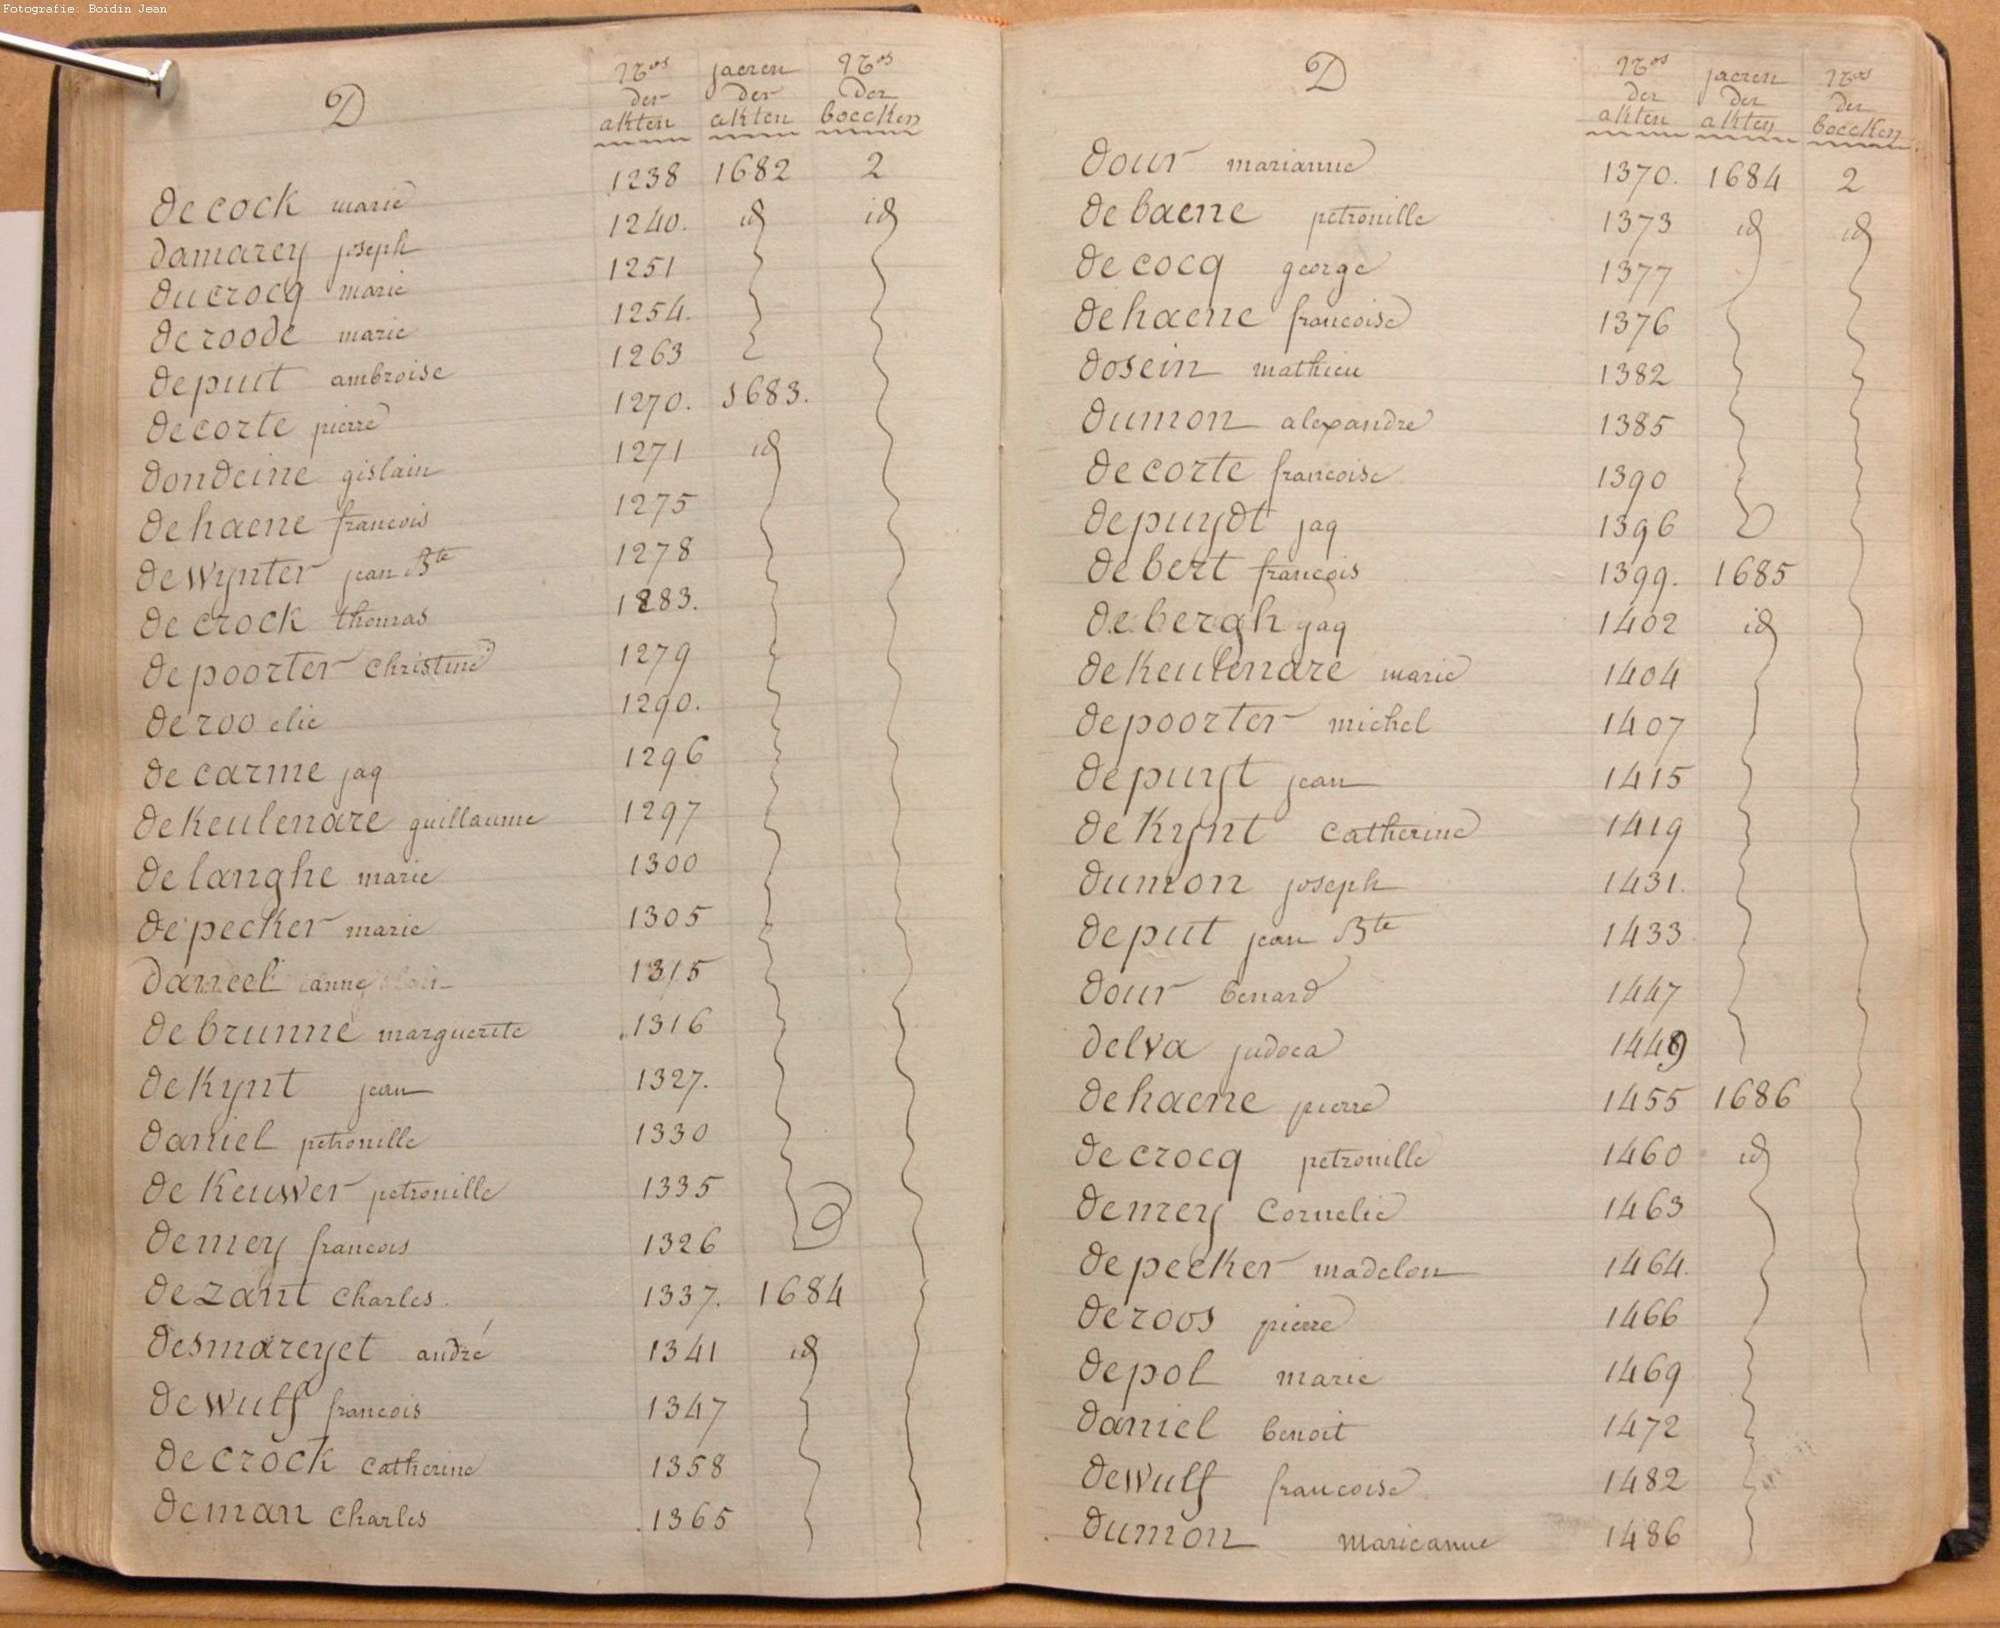 Fotografie: Boidin Jean
D
Nos der akten jaeren der akten Nos der boecken
de cock marie 1238 1682 2
damarey joseph 1240. id id
ducrocq marie 1251
de roode marie 1254.
depuit ambroise 1263
de corte pierre 1270. 1683.
dondeine gislain 1271 id
de haene francois 1275
de wynter jean Bte 1278
de crock thomas 1283.
de poorter christine 1279
de roo elie 1290.
de carme jaq 1296
de keulenare guillaume 1297
de langhe marie 1300
de pecker marie 1305
daneel anne 1315
de brunne marguerite 1316
de kynt jean 1327.
daniel petronille 1330
de keuwer petronille 1335
demey francois 1326
dezant charles. 1337. 1684
desmareyet andré 1341 id
de wulf francois 1347
de crock catherine 1358
deman charles 1365
D
Nos der akten jaeren der akten Nos der boecken
dour marianne 1370. 1684 2
de baene petronille 1373 id id
de cocq george 1377
de haene francoise 1376
dosein mathieu 1382
dumon alexandre 1385
de corte francoise 1390
de puydt jaq 1396
de bert francois 1399. 1685
de bergh jaq 1402 id
de keulenare marie 1404
de poorter michel 1407
de puyt jean 1415
de kynt catherine 1419
dumon joseph 1431.
deput jean Bte 1433
dour benard 1447
delva judoca 1449
de haene pierre 1455 1686
de crocq petronille 1460 id
demey cornelie 1463
de pecker madelon 1464.
de roos pierre 1466
depol marie 1469
daniel benoit 1472
dewulf francoise 1482
dumon marieanne 1486